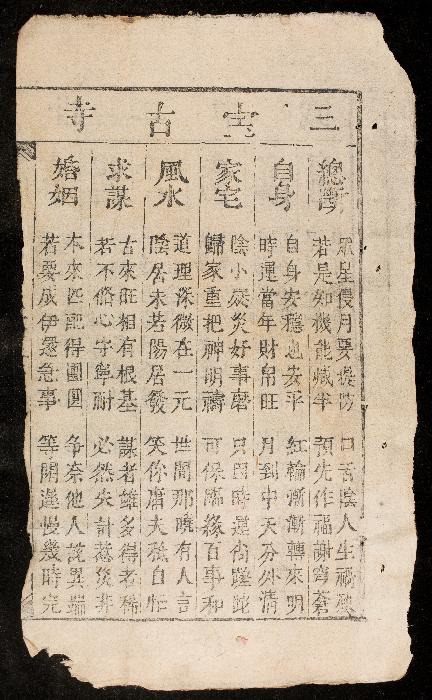 三宝古寺
總斷
眾星侵月要提防 口舌陰人生禍殃
若是知機能減半 預先作福謝穹蒼
自身
自身安穩也安平 紅輪漸漸轉來明
時運當年財帛旺 月到中天分外清
家宅
陰小疾災好事磨 只因時運尚蹉跎
歸家重把神明禱 可保臨緣百事和
風水
道理深微在一元 世間那曉有人言
陰居未若陽居發 笑你唐夫私自
求謀
古來旺相有根基 謀者雖多得者稀
若不俗心守寧耐 必然失計惹災非
婚姻
本來匹配得團圓 爭奈他人說異端
若要成伊急事 等閑慢幾時完